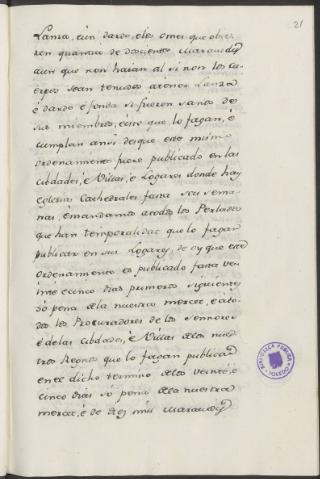 21
Lanza, é un dardo, e los omes que obie-
ren quantia de doscientos maravedis
aun que non haian al si non los cu-
erpos sean tenudos a tener Lanza
é dardo é fonda si fueren sanos de
sus miembros, é esto que lo fagan, é
cumplan ansi desque este mismo
ordenamiento fuere publicado en las
cibdades, é Villas, é Logares donde hay
eglesias Cathedrales fasta seis sema-
nas, e mandamos a todos los Perlados
que han temporalidat que lo fagan
publicar en sus Logares, de oy que este
ordenamiento es publicado fasta vein-
te é cinco dias primeros siguientes
só pena de la nuestra merced, e a to-
dos los Procuradores de los Sennores
é de las cibdades, é Villas de los nues-
tros Regnos que lo fagan publicar
en el dicho termino de los veinte, é
cinco dias só pena de la nuestra
merced, é de diez mil maravedis
BIBLIOTECA PUBLICA
TOLEDO